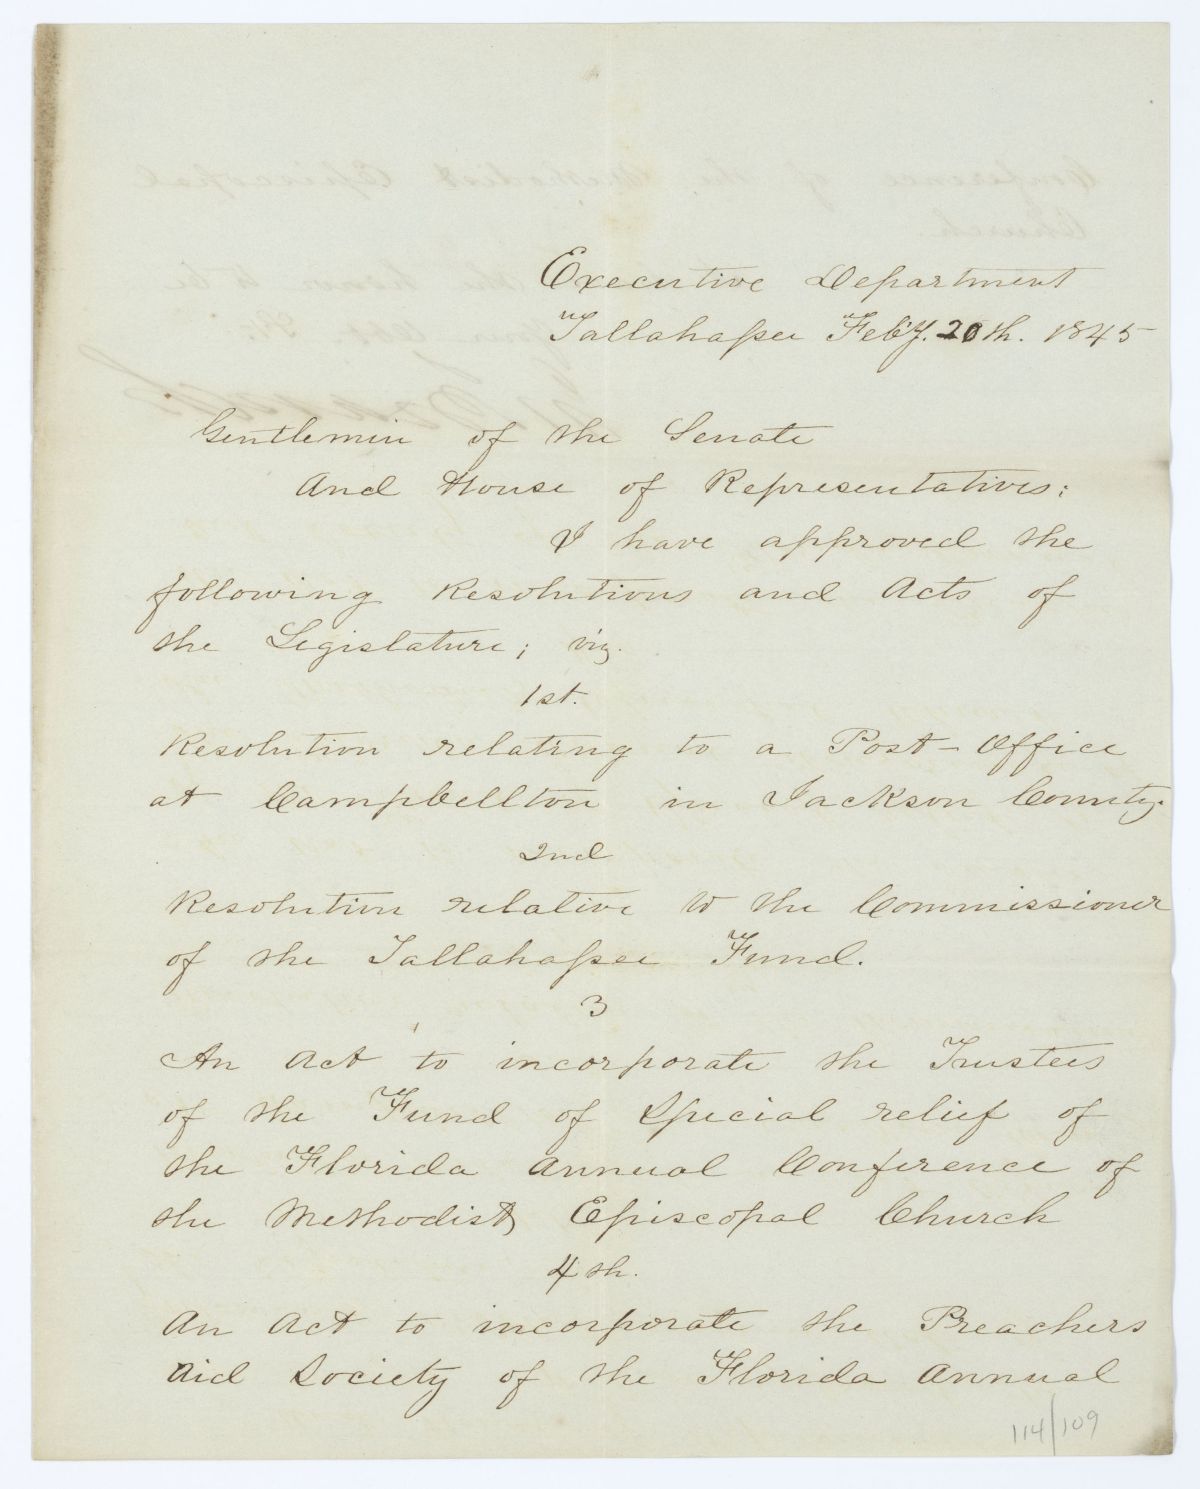 Executive Department
Tallahassee Feb'y. 20th. 1845
Gentlemin of the Senate
And House of Representatives;
I have approved the
following Resolutions and Acts of
the Legislature; viz.
1st.
Resolution relating to a Post-Office
at Campbellton in Jackson County.
2nd
Resolution relative to the Commissioner
of the Tallahassee Fund.
3
An Act to incorporate the Trustees
of the Fund of Special relief of
the Florida Annual Conference of
the Methodist Episcopal Church
4th.
An Act to incorporate the Preachers
Aid Society of the Florida Annual
114/109